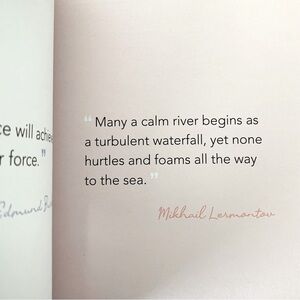 ce will
r force."
Edmund
"Many a calm river begins as
a turbulent waterfall, yet none
hurtles and foams all the way
to the sea."
Mikhail Lermontov